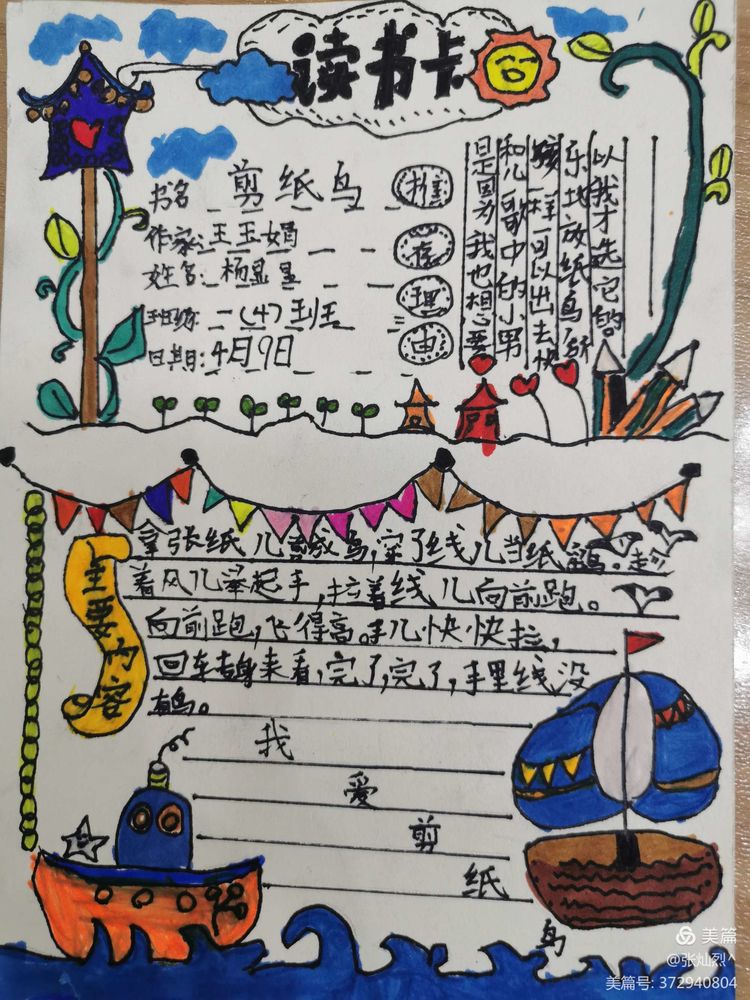 读书卡
书名 剪纸鸟
作家:王玉娟
姓名:杨
班级:一(4)班
日期:4月9日
推
理
由
是因为我也想要
和儿歌中的小男
孩一样可以出去快
乐地放纸鸟,所
以我才选它的。
主要内容
拿张纸儿 鸟,穿了线儿当纸 。趁
着风儿举起手,拉着线儿向前跑。
向前跑,飞得高。手儿快快拉,
回转身来看,完了,完了,手里线没
有鸟。
我
爱
剪
纸
鸟
美篇
@张灿烈^
美篇号: 372940804